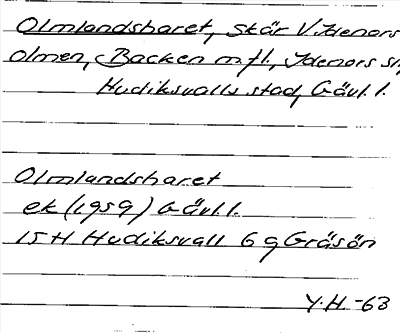 Olmlandsharet, skär V. Idenors
olmen, Backen m.fl., Idenors sn,
Hudiksvalls stad, Gävl. l.
Olmlandsharet
ek (1959) Gävl. l.
15H Hudiksvall 6 g Gräsön
Y.H. -63